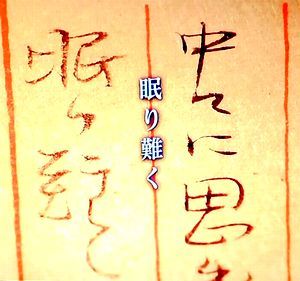 中々に思
眠り難く
眠り難く